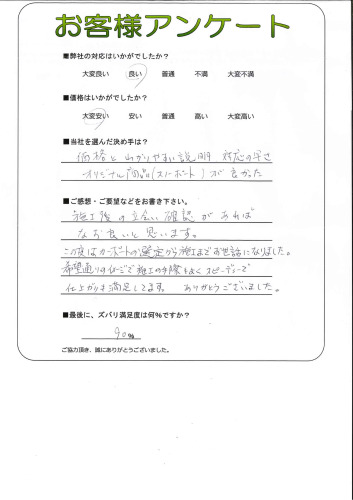 お客様アンケート
■弊社の対応はいかがでしたか?
大変良い 良い 普通 不満 大変不満
■価格はいかがでしたか?
大変安い 安い 普通 高い 大変高い
■当社を選んだ決め手は?
価格と わかりやすい説明 対応の早さ
オリジナル商品(スノーポート)が良かった
■ご感想・ご要望などをお書き下さい。
施工後の立会い確認があれば
なお良いと思います。
この度はカーポートの選定から施工までお世話になりました。
希望通りのイメージで施工の手際もよく スピーディーで
仕上がりも満足してます。 ありがとうございました。
■最後に、ズバリ満足度は何%ですか?
90%
ご協力頂き、誠にありがとうございました。